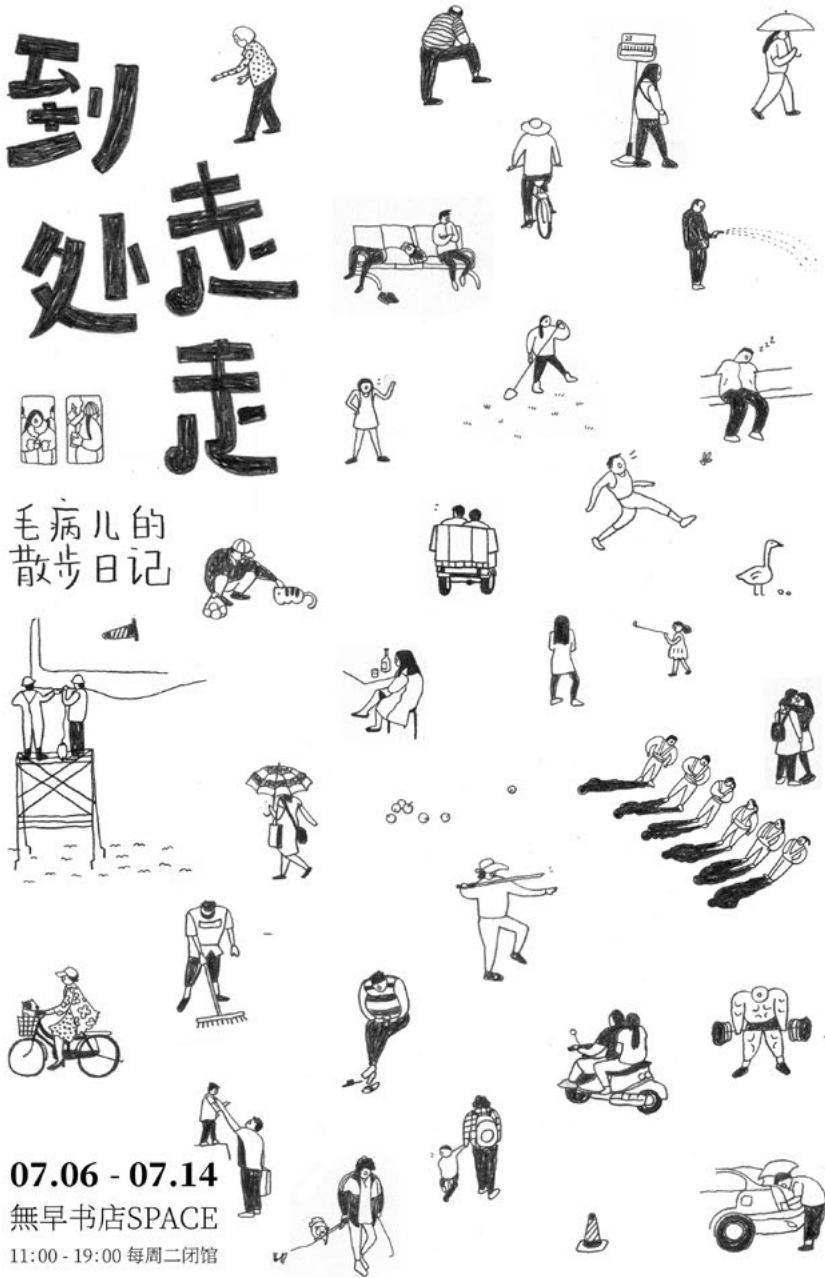 到
处走
走
毛病儿的
散步日记
zzz
07.06 - 07.14
無早书店SPACE
11:00 - 19:00 每周二闭馆